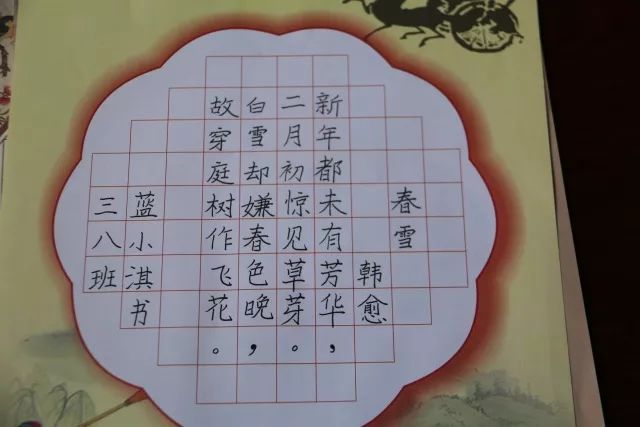 春雪
韩愈
新年都未有芳华，
二月初惊见草芽。
白雪却嫌春色晚，
故穿庭树作飞花。
蓝小淇书
三八班